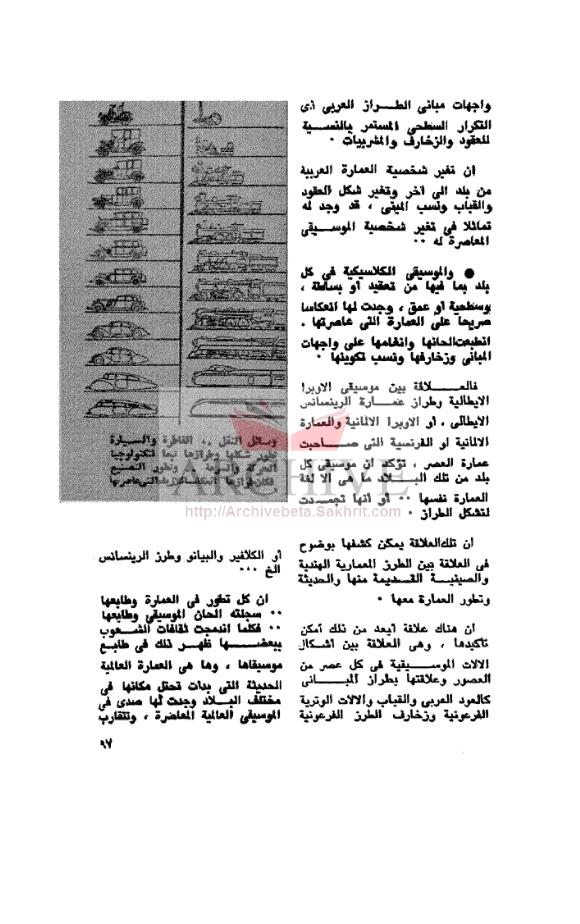 واجهات مبانى الطراز العربى أى
التكرار السطحى المستمر بالنسبة
للعقود والزخارف والمشربيات ٠
ان تغير شخصية العمارة العربية
من بلد الى آخر وتغير شكل العقود
والقباب ونسب المبنى ، قد وجد له
تماثلا فى تغير شخصية الموسيقى
المعاصرة له ٠٠
● والموسيقى الكلاسيكية فى كل
بلد بما فيها من تعقيد أو بساطة ،
وسطحية أو عمق ، وجدت لها انعكاسا
صريحا على العمارة التى عاصرتها .
انطبعت الحانها وانغامها على واجهات
المبانى وزخارفها ونسب تكوينها ٠
فالعلاقة بين موسيقى الاوبرا
الايطالية وطراز عمارة الرينسانس
الايطالى ، أو الاوبرا الالمانية والعمارة
الالمانية او الفرنسية التى صاحبت
عمارة العصر ، تؤكد ان موسيقى كل
بلد من تلك البلاد ما هى الا لغة
العمارة نفسها ٠٠ أو أنها تجمدت
لتشكل الطراز ٠
ان تلك العلاقة يمكن كشفها بوضوح
فى العلاقة بين الطرز المعمارية الهندية
والصينية القديمة منها والحديثة
وتطور العمارة معها ٠
ان هناك علاقة أبعد من ذلك أمكن
تأكيدها ، وهى العلاقة بين أشكال
الالات الموسيقية فى كل عصر من
العصور وعلاقتها بطراز المبانى
كالعود العربى والقباب والالات الوترية
الفرعونية وزخارف الطرز الفرعونية
وسائل النقل .. القاطرة والسيارة
تطور شكلها وطرازها تبعا لتكنولوجيا
الحركة والسرعة وتطور
فكان طرازها التى عاصرها
ARCHIVE
http://Archivebeta.Sakhrit.com
أو الكلافير والبيانو وطرز الرينسانس
الخ ٠٠٠
ان كل تطور فى العمارة وطابعها
٠٠ سجلته الحان الموسيقى وطابعها
٠٠ فكلما اندمجت ثقافات الشعوب
ببعضها ظهر ذلك فى طابع
موسيقاها ، وها هى العمارة العالمية
الحديثة التى بدأت تحتل مكانها فى
مختلف البلاد وجدت لها صدى فى
الموسيقى العالمية المعاصرة ، وتتقارب
٩٧